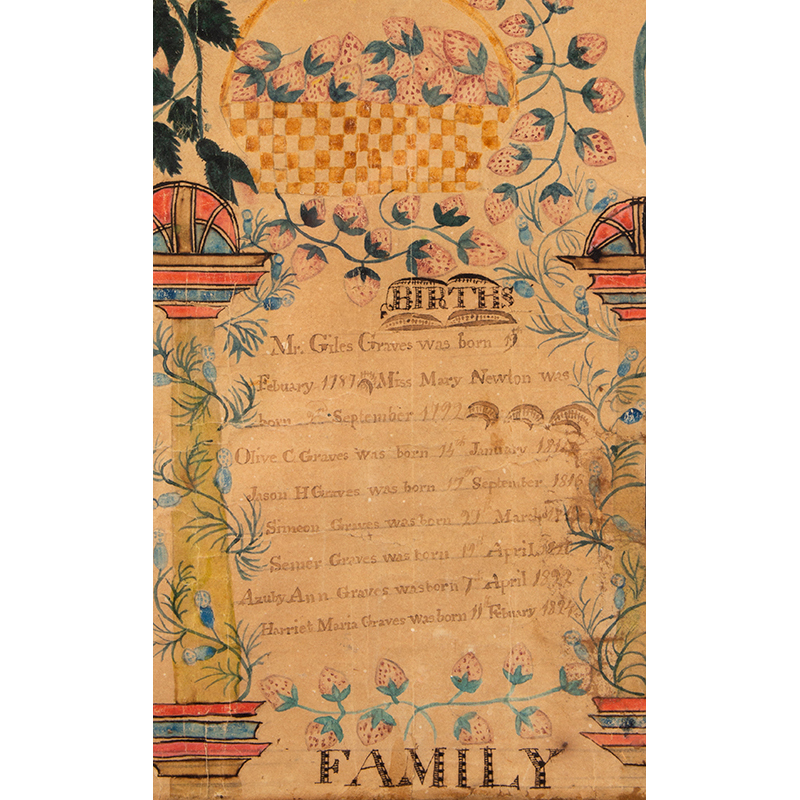 BIRTHS
Mr. Giles Graves was born 15
Febuary 1787 Miss Mary Newton was
born September 1792
Olive C Graves was born 14th January
Jason H Graves was born 17th September 1816
Simeon Graves was born 21 March
Semer Graves was born 19th April
Azuby Ann Graves was born 7th April 1822
Harriet Maria Graves was born 11th Febuary 1824
FAMILY